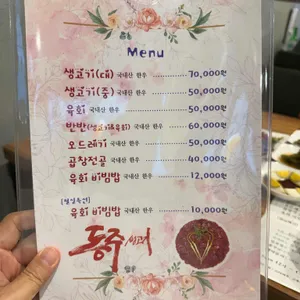 Menu
생고기(대) 국내산 한우 70,000원
생고기(중) 국내산 한우 50,000원
육회 국내산 한우 50,000원
반반(생고기&육회) 국내산 한우 60,000원
오드레기 국내산 한우 50,000원
곱창전골 국내산 한우 40,000원
육회 비빔밥 국내산 한우 12,000원
육회 비빔밥 국내산 한우 10,000원
동주